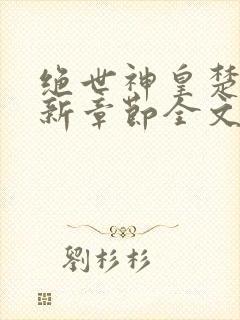 绝世神皇楚
新章节全文
劉杉杉